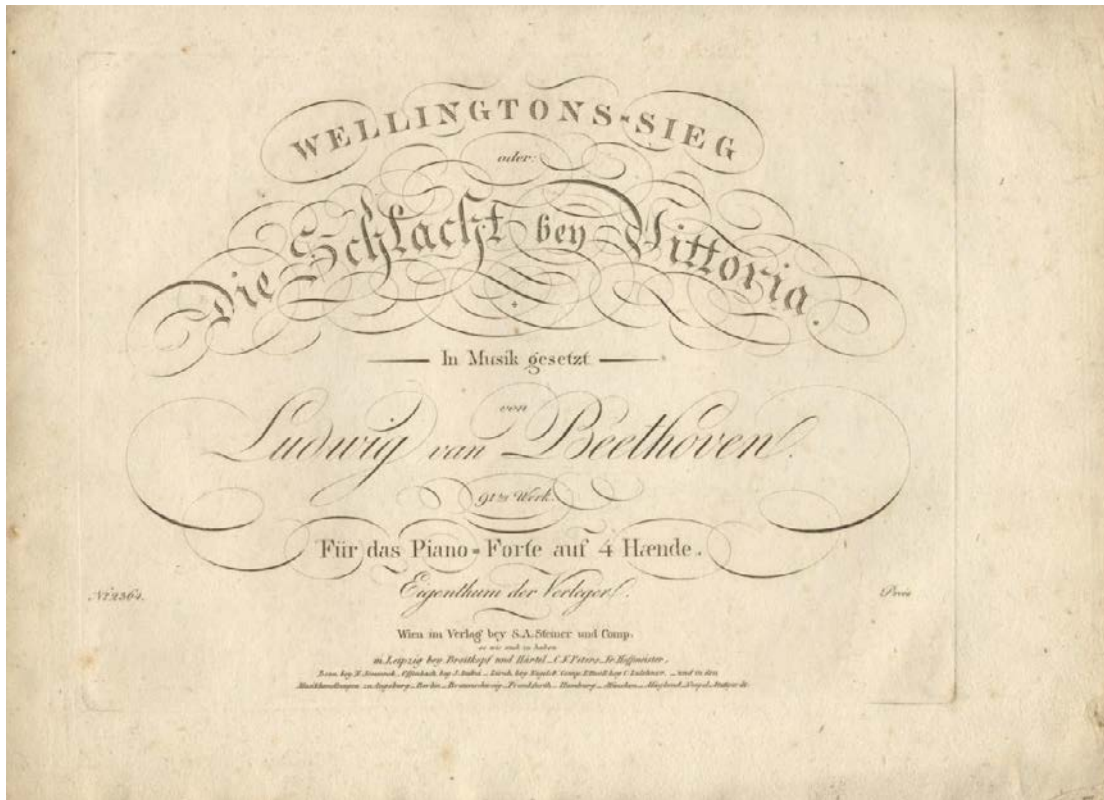 WELLINGTONS=SIEG
oder:
Die Schlacht bey Vittoria.
In Musik gesetzt
von
Ludwig van Beethoven.
91tes Werk.
Für das Piano=Forte auf 4 Hænde.
Eigenthum der Verleger.
No. 2364.
Preis
Wien im Verlag bey S.A. Steiner und Comp.
so wie auch zu haben
in Leipzig bey Breitkopf und Härtel_C.F. Peters_Fr. Hoffmeister,
Bonn bey N. Simrock, Offenbach bey J. André_Zürch bey Nägeli & Comp. bey C. Zulehner,_und in den
Musikhandlungen zu Augsburg_Berlin_Braunschweig_Frankfurth_Hamburg_München_Mayland_Neapel_Stuttgardt.